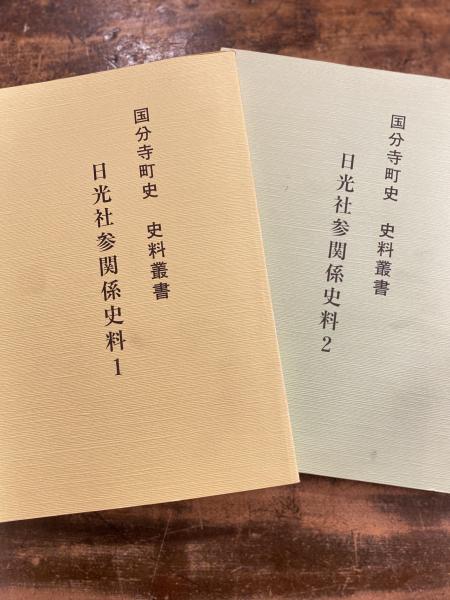 国分寺町史 史料叢書
日光社参関係史料1
国分寺町史 史料叢書
日光社参関係史料2